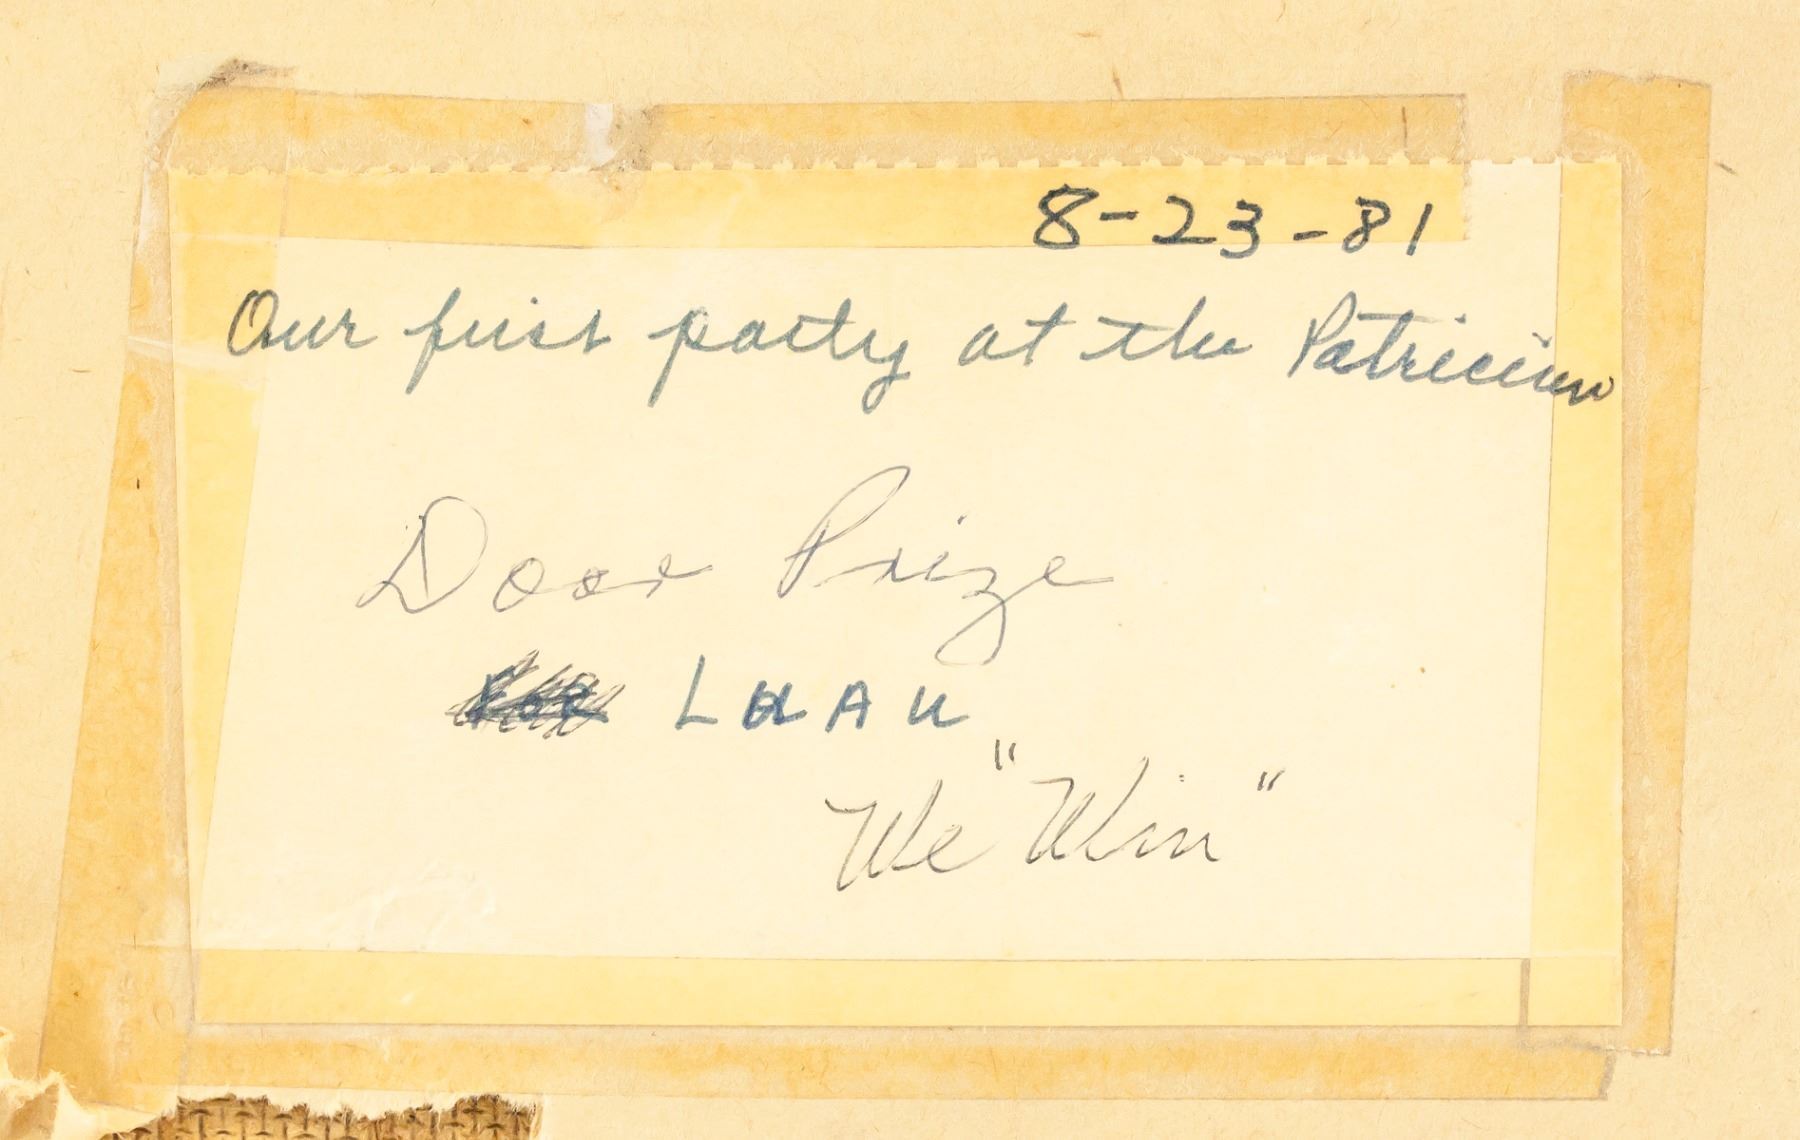 8-23-81
Our first party at the Patrician
Door Prize
LUAU
We "Win"